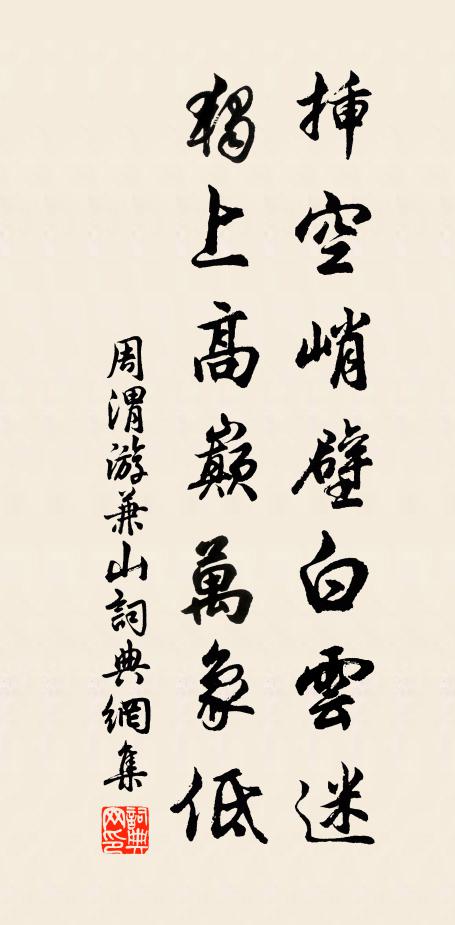 插空峭壁白雲迷
獨上高巔萬象低
周渭游兼山詞典網集
詞典
网印